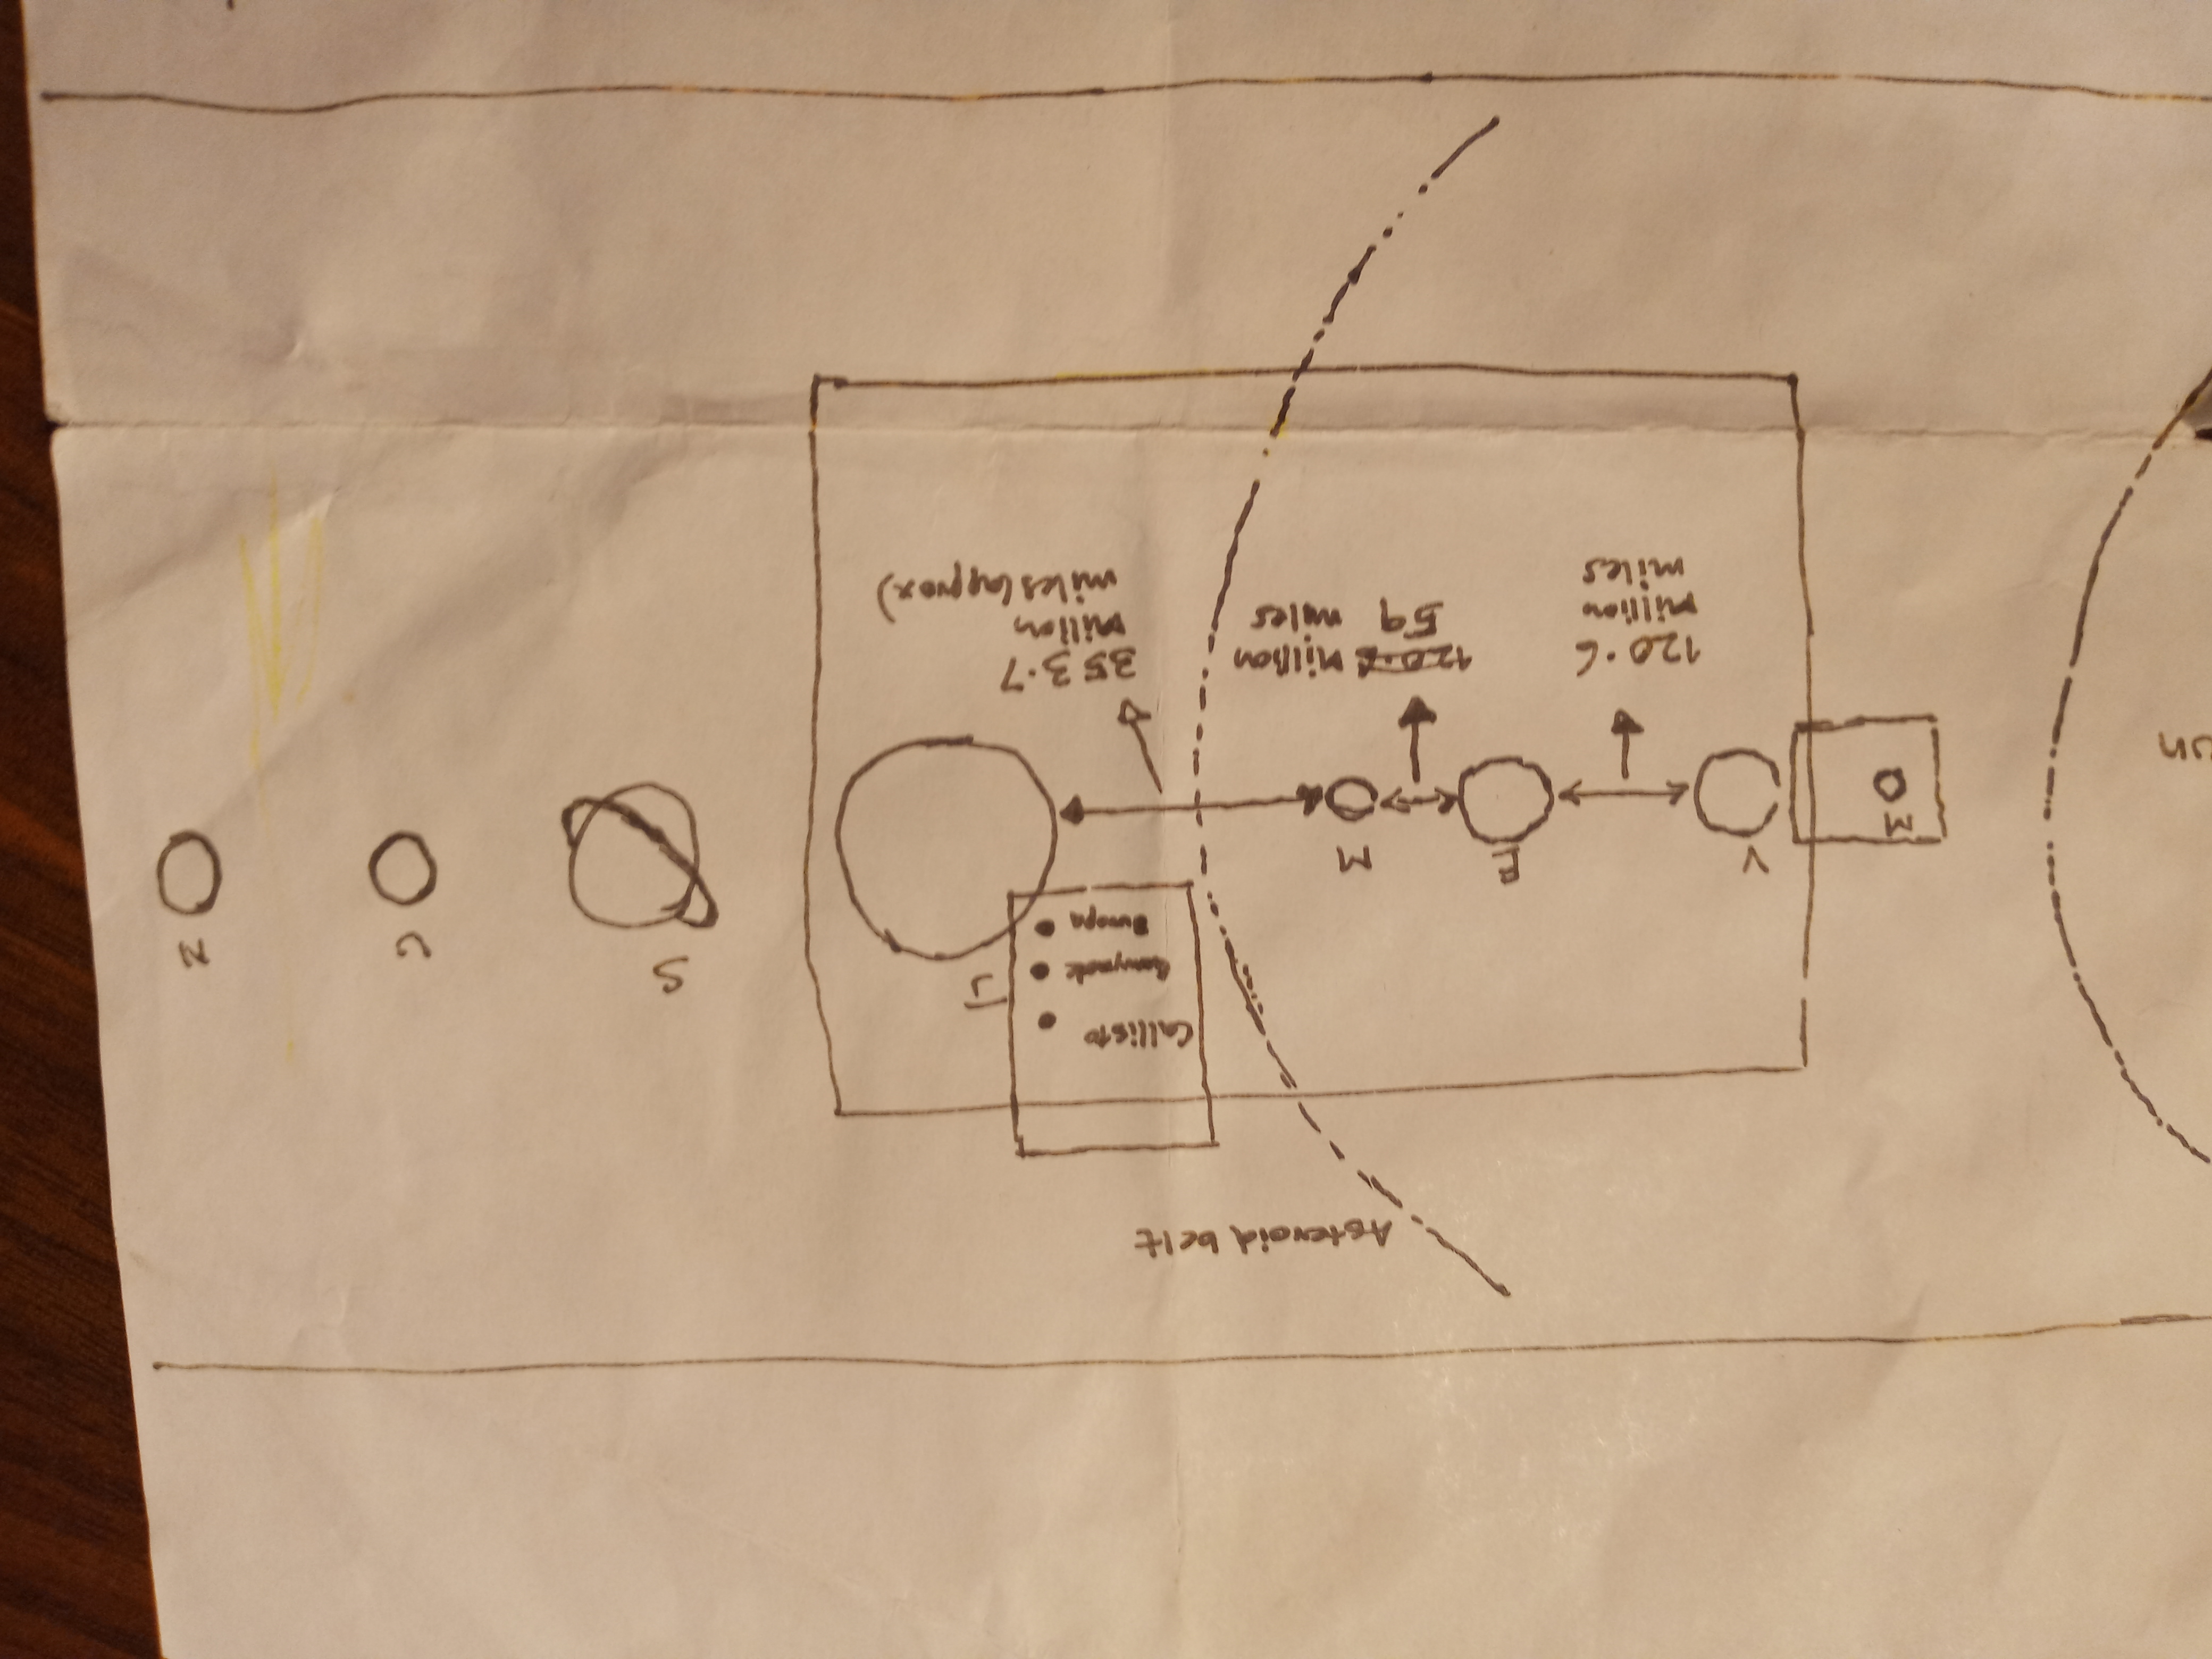 Asteroid belt
Callisto
Ganymede
Europa
J
S
U
N
V
E
M
M
un
120.6
million
miles
120.6 Million
59 miles
353.7
Millon
miles (approx)